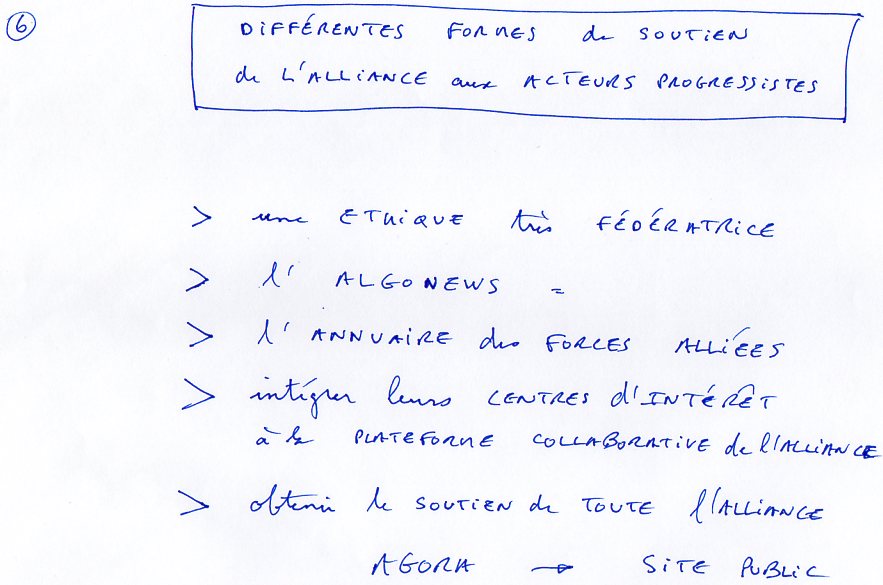 6
DiFFÉRENTES FORMES de SOUTiEN
de L'ALLiANCE aux ACTEURS PROGRESSiSTES
> une ETHiQUE très FÉDÉRATRiCE
> l'ALGONEWS =
> l'ANNUAiRE des FORCES ALLiÉES
> intégrer leurs CENTRES d'INTÉRÊT
à la PLATEFORME COLLABORATiVE de l'ALLiANCE
> obtenir le SOUTiEN de TOUTE l'ALLiANCE
AGORA → SiTE PUBLiC